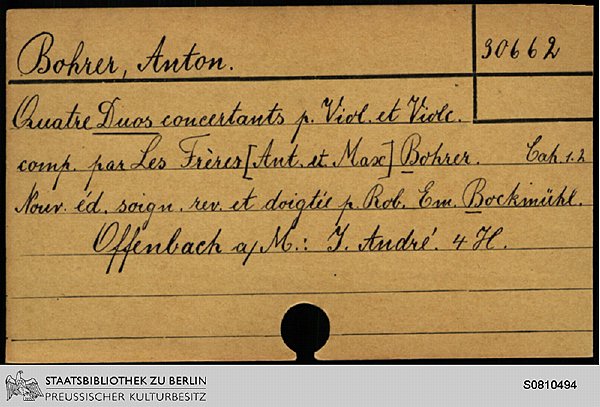 Bohrer, Anton.
30662
Quatre Duos concertants p. Viol. et Violc.
comp. par Les Frères [Ant. et Max] Bohrer. Cah. 1.2
Nouv. éd. soign. rev. et doigtée p. Rob. Em. Bockmühl.
Offenbach a/M.: J. André. 4 H.
STAATSBIBLIOTHEK ZU BERLIN
PREUSSISCHER KULTURBESITZ
S0810494